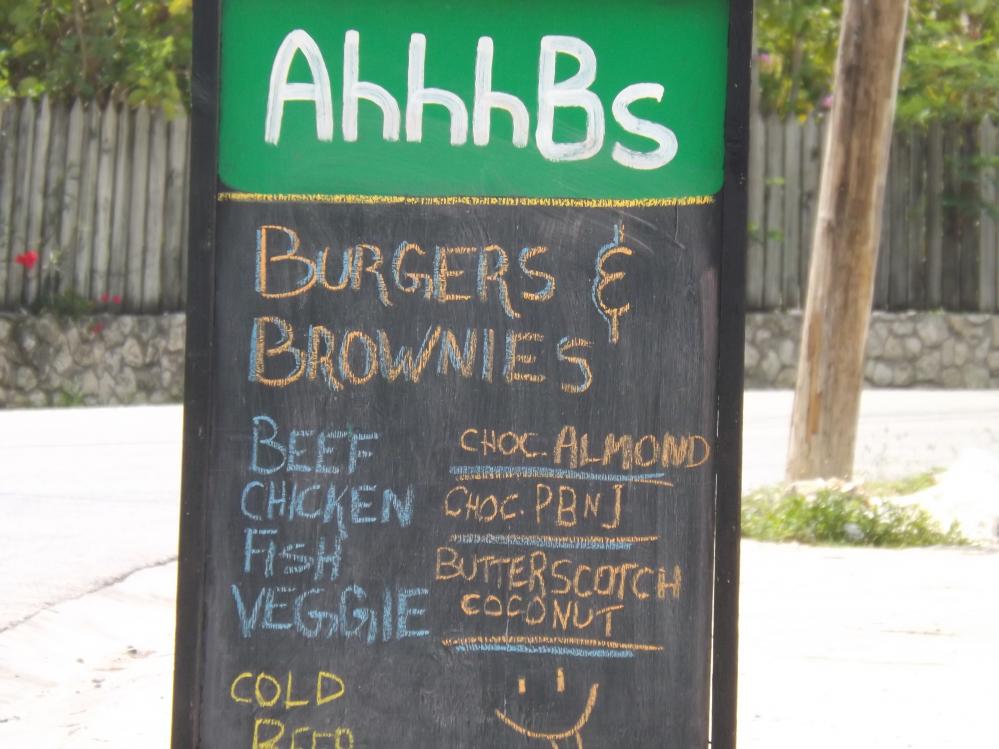 AhhhBs
BURGERS &
BROWNIES
BEEF
CHICKEN
FISH
VEGGIE
CHOC. ALMOND
CHOC. PBNJ
BUTTERSCOTCH
COCONUT
COLD
BEER